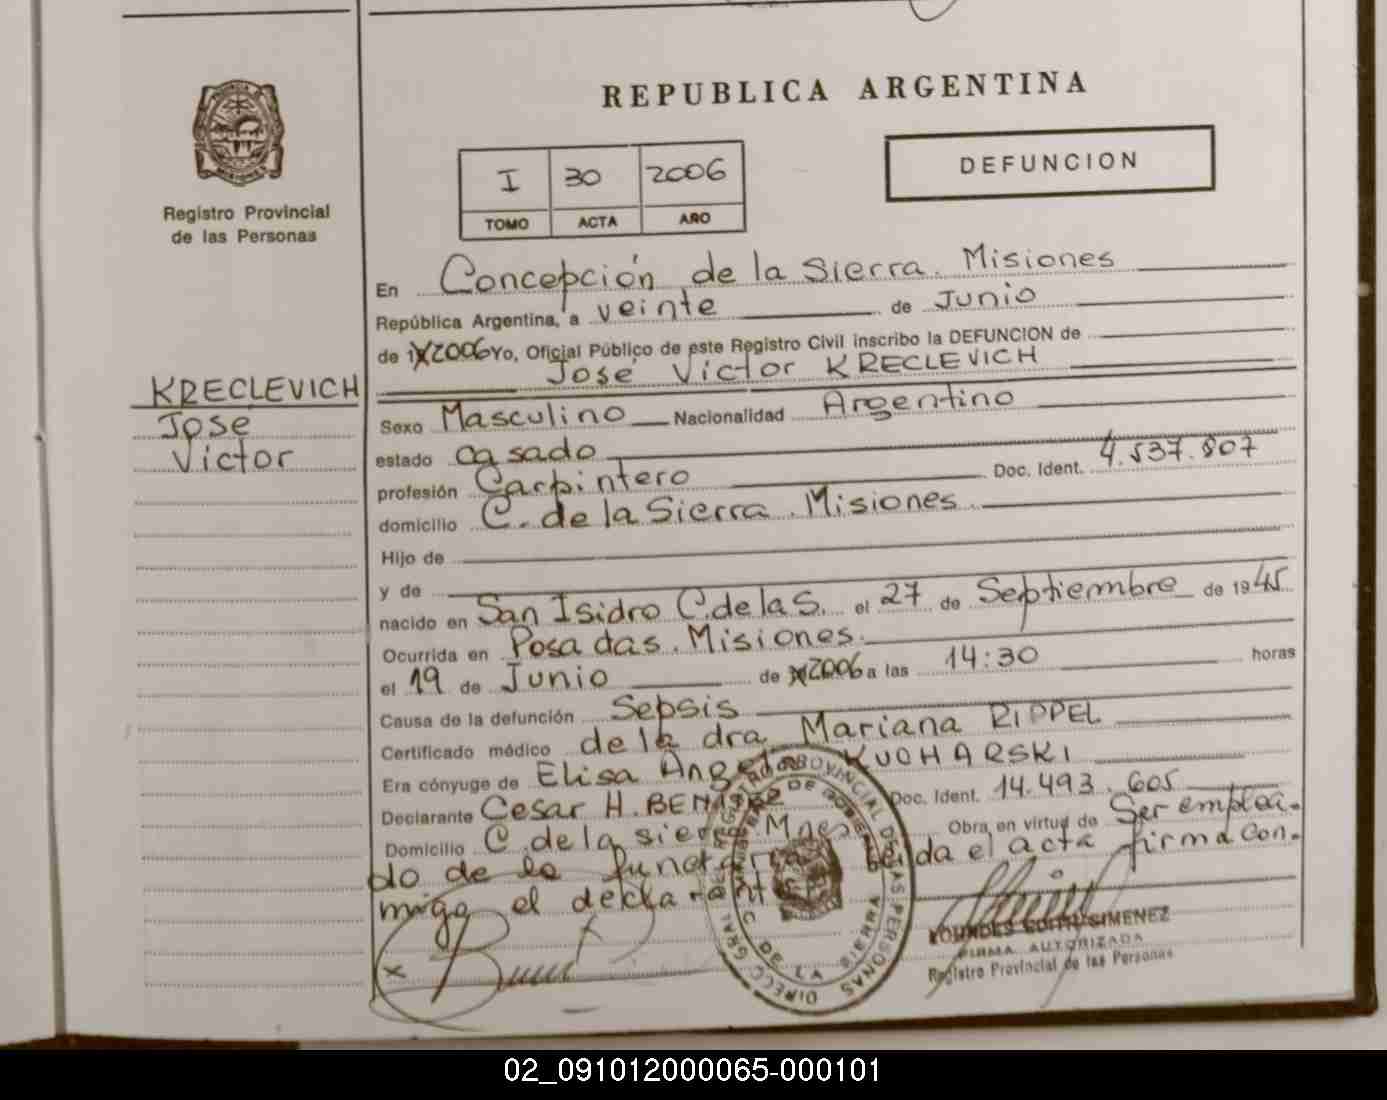 REPUBLICA ARGENTINA
DEFUNCION
I 30 2006
TOMO ACTA AÑO
Registro Provincial
de las Personas
KRECLEVICH
José
Victor
En Concepción de la Sierra. Misiones
República Argentina, a veinte de Junio
de 2006 Yo, Oficial Público de este Registro Civil inscribo la DEFUNCION de
José Victor KRECLEVICH
Sexo Masculino Nacionalidad Argentino
estado casado
profesión Carpintero Doc. Ident. 4.537.807
domicilio C. de la Sierra. Misiones
Hijo de
y de
nacido en San Isidro C. de la S. el 27 de Septiembre de 1945
Ocurrida en Posadas. Misiones.
el 19 de Junio de 2006 a las 14:30 horas
Causa de la defunción Sepsis
Certificado médico de la dra Mariana RIPPEL
Era cónyuge de Elisa KUCHARSKI
Declarante Cesar H. Doc. Ident. 14.493.605
Domicilio C. de la sierra Mnes Obra en virtud de Ser emplea-
do de la funeraria leida el acta firma con-
migo el declarante
REGISTRO PROVINCIAL DE LAS PERSONAS DIRECC. GRAL.
C. DE LA SIERRA
LOURDES EDITH GIMENEZ
FIRMA AUTORIZADA
Registro Provincial de las Personas
02_091012000065-000101